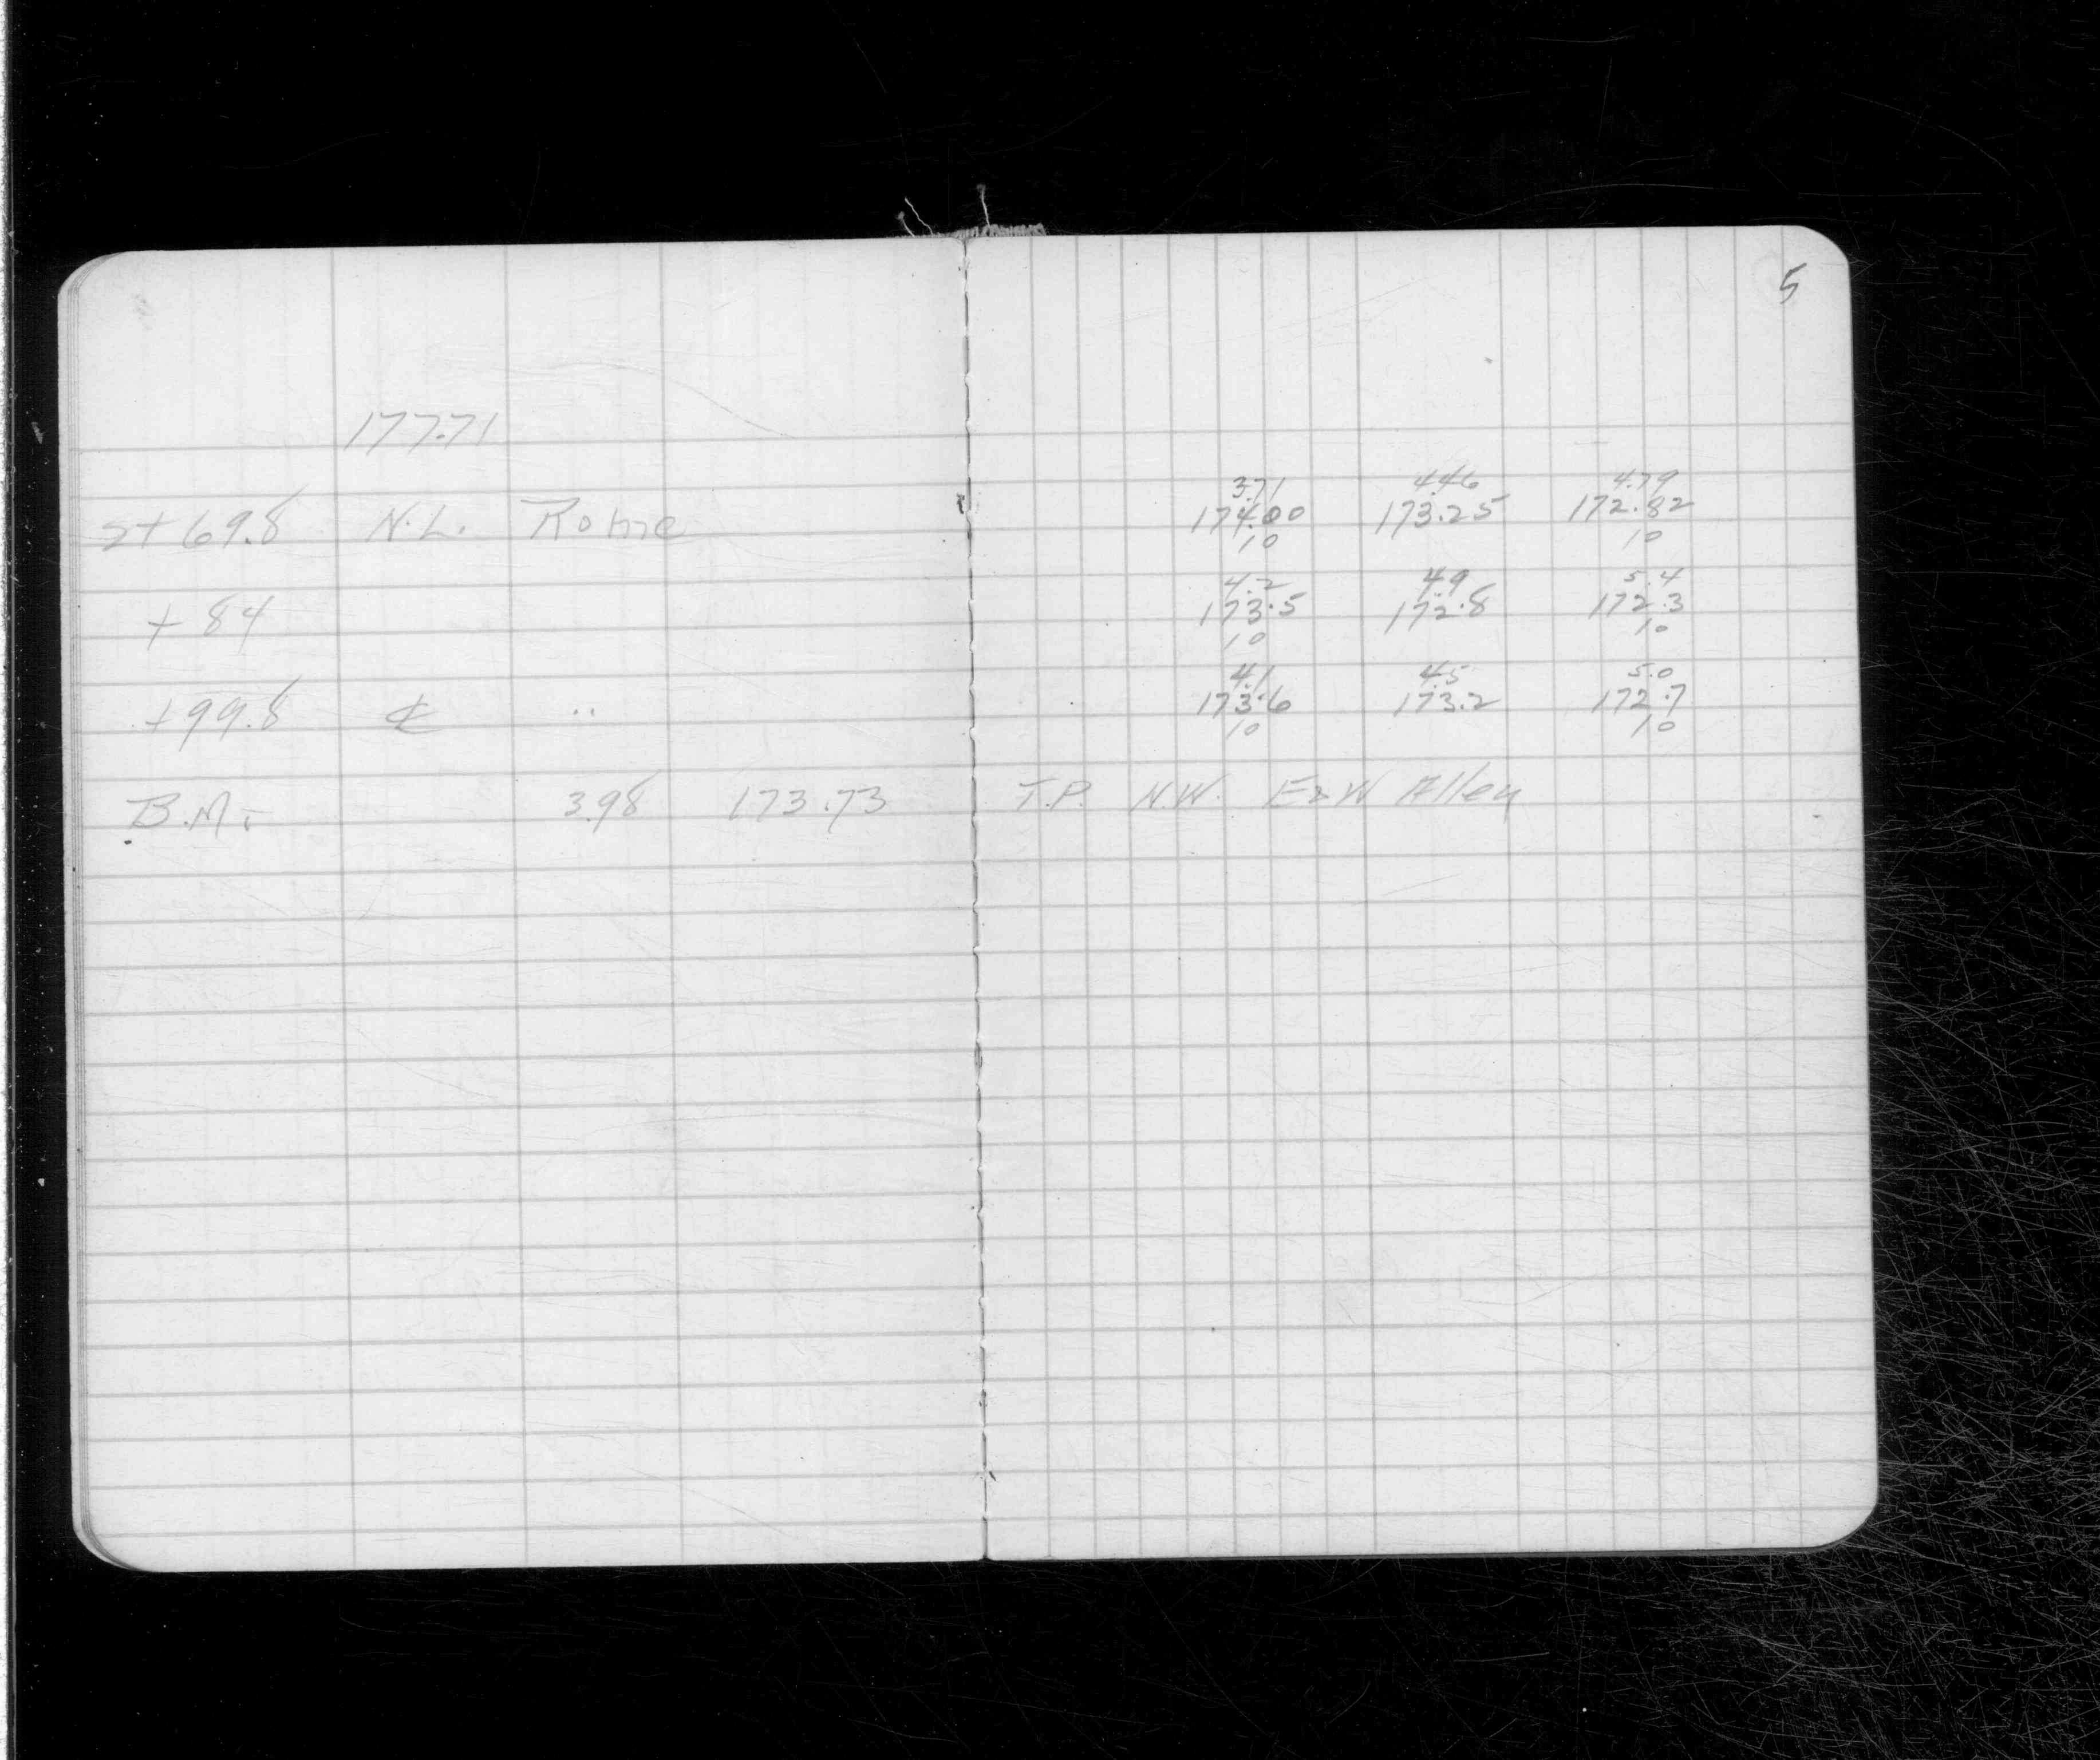 5
177.71
3.71 4.46 4.79
2+69.8 N.L. Rome 174.00 173.25 172.82
10 10
4.2 4.9 5.4
+84 173.5 172.8 172.3
10 10
4.1 4.5 5.0
+99.8 ₵ " 173.6 173.2 172.7
10 10
B.M. 3.98 173.73 T.P. N.W. E&W Alley